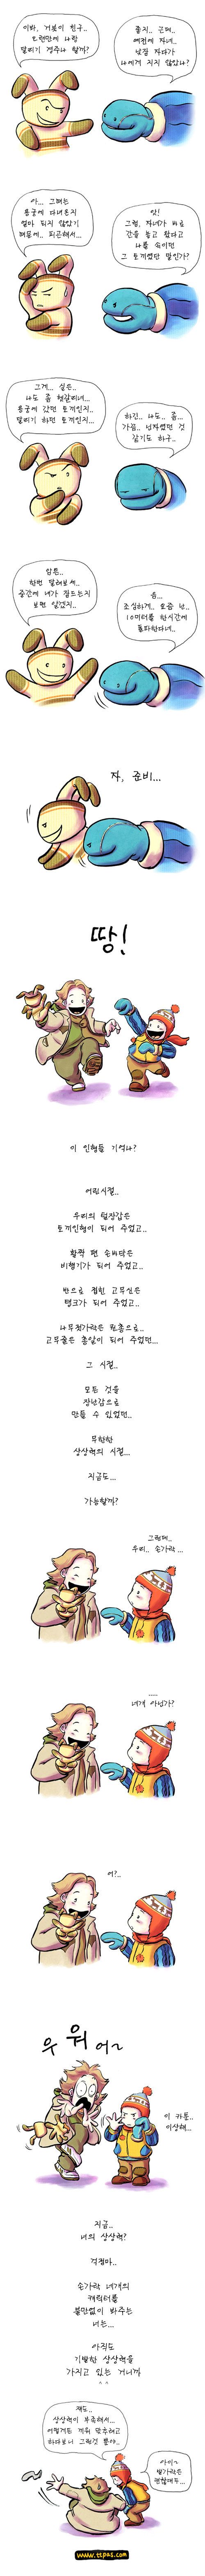 이봐, 거북이 친구..
오랜만에 나랑
달리기 경주나 할까?
좋지.. 근데..
예전에 자네..
낮잠 자다가
나에게 지지 않았나?
아... 그때는
용궁에 다녀온지
얼마 되지 않았기
때문에.. 피곤해서...
앗!
그럼, 자네가 바로
간을 놓고 왔다고
나를 속이던
그 토끼였단 말인가?
그게... 실은..
나도 좀 헷갈리네...
용궁에 갔던 토끼인지..
달리기 하던 토끼인지...
하긴.. 나도.. 좀...
가끔.. 닌자였던 것
같기도 하구..
암튼..
한번 달려보세..
중간에 내가 잠드는지
보면 알겠지..
음...
조심하게.. 요즘 난..
10미터를 한시간에
돌파한다네..
자, 준비...
땅!
이 인형들 기억나?
어린시절..
우리의 털장갑은
토끼인형이 되어 주었고..
활짝 편 손바닥은
비행기가 되어 주었고..
반으로 접힌 고무신은
탱크가 되어 주었고..
나무젓가락은 권총으로..
고무줄은 총알이 되어 주었던...
그 시절..
모든 것을
장난감으로
만들 수 있었던..
무한한
상상력의 시절...
지금도...
가능할까?
그런데..
우리.. 손가락...
.....
네개 아닌가?
어?..
우 워 어~
이 카툰..
이상해...
지금..
너의 상상력?
걱정마..
손가락 네개의
캐릭터를
불만없이 봐주는
너는...
아직도
기발한 상상력을
가지고 있는 거니까
^^
쟤도..
상상력이 부족해서...
어떻게든 끼워 맞추려고
하다보니 그런것 뿐야..
아이~
발가락은
괜찮네무..
www.tcpas.com